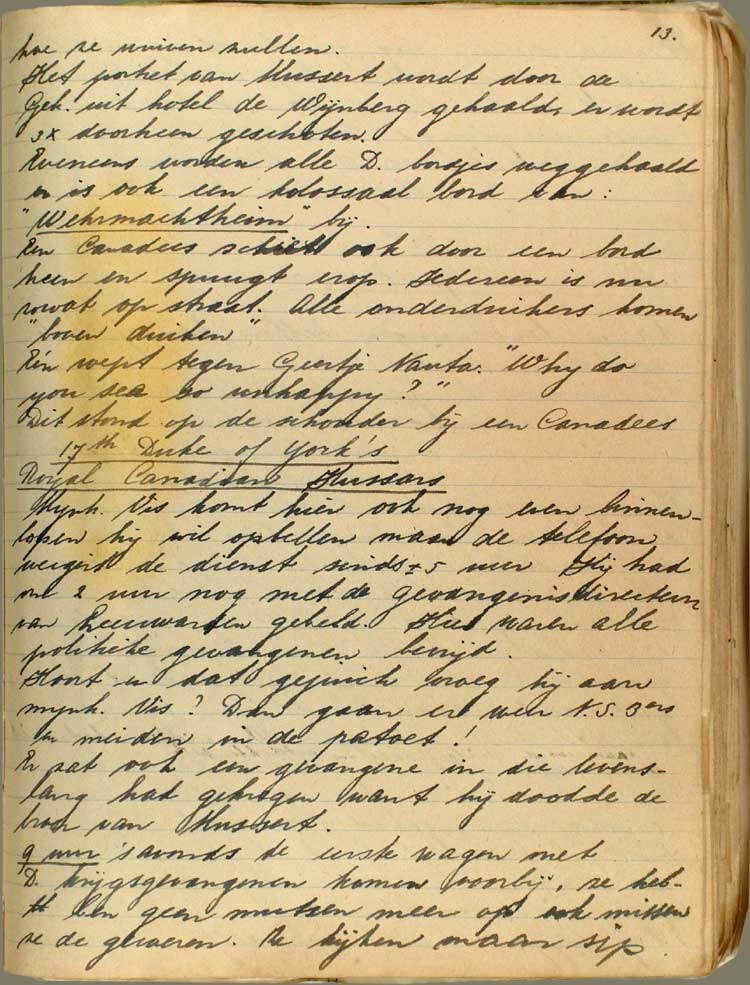 13.
hoe ze wuiven zullen.
Het portret van Mussert wordt door de
Geh. uit hotel de Wijnberg gehaald, er wordt
3x doorheen geschoten.
Eveneens worden alle D. bordjes weggehaald
er is ook een kolossaal bord van:
"Wehrmachtheim" bij.
Een Canadees schiett ook door een bord
heen en spuugt erop. Iedereen is nu
zowat op straat. Alle onderduikers komen
"boven duiken"
Eén wept tegen Geertje Nauta. "Why do
you see so unhappy?"
Dit stond op de schouder bij een Canadees
17th Duke of York's
Royal Canadian Hussars
Mijnh. Vis komt hier ook nog even binnen-
lopen hij wil opbellen maar de telefoon
weigert de dienst sinds ± 5 uur Hij had
om 2 uur nog met de gevangenisdirecteur
van Leeuwarden gebeld. Hier waren alle
politieke gevangenen bevrijd.
Hoort u dat gejuich vroeg hij aan
mijnh. Vis? Dan gaan er weer N.S.B ers
en meiden in de patoet!
Er zat ook een gevangene in die levens-
lang had gekregen want hij doodde de
broer van Mussert.
9 uur 's avonds de eerste wagen met
D. krijgsgevangenen komen voorbij, ze heb-
ben geen mutsen meer op ook missen
ze de geweren. Ze kijken maar sip